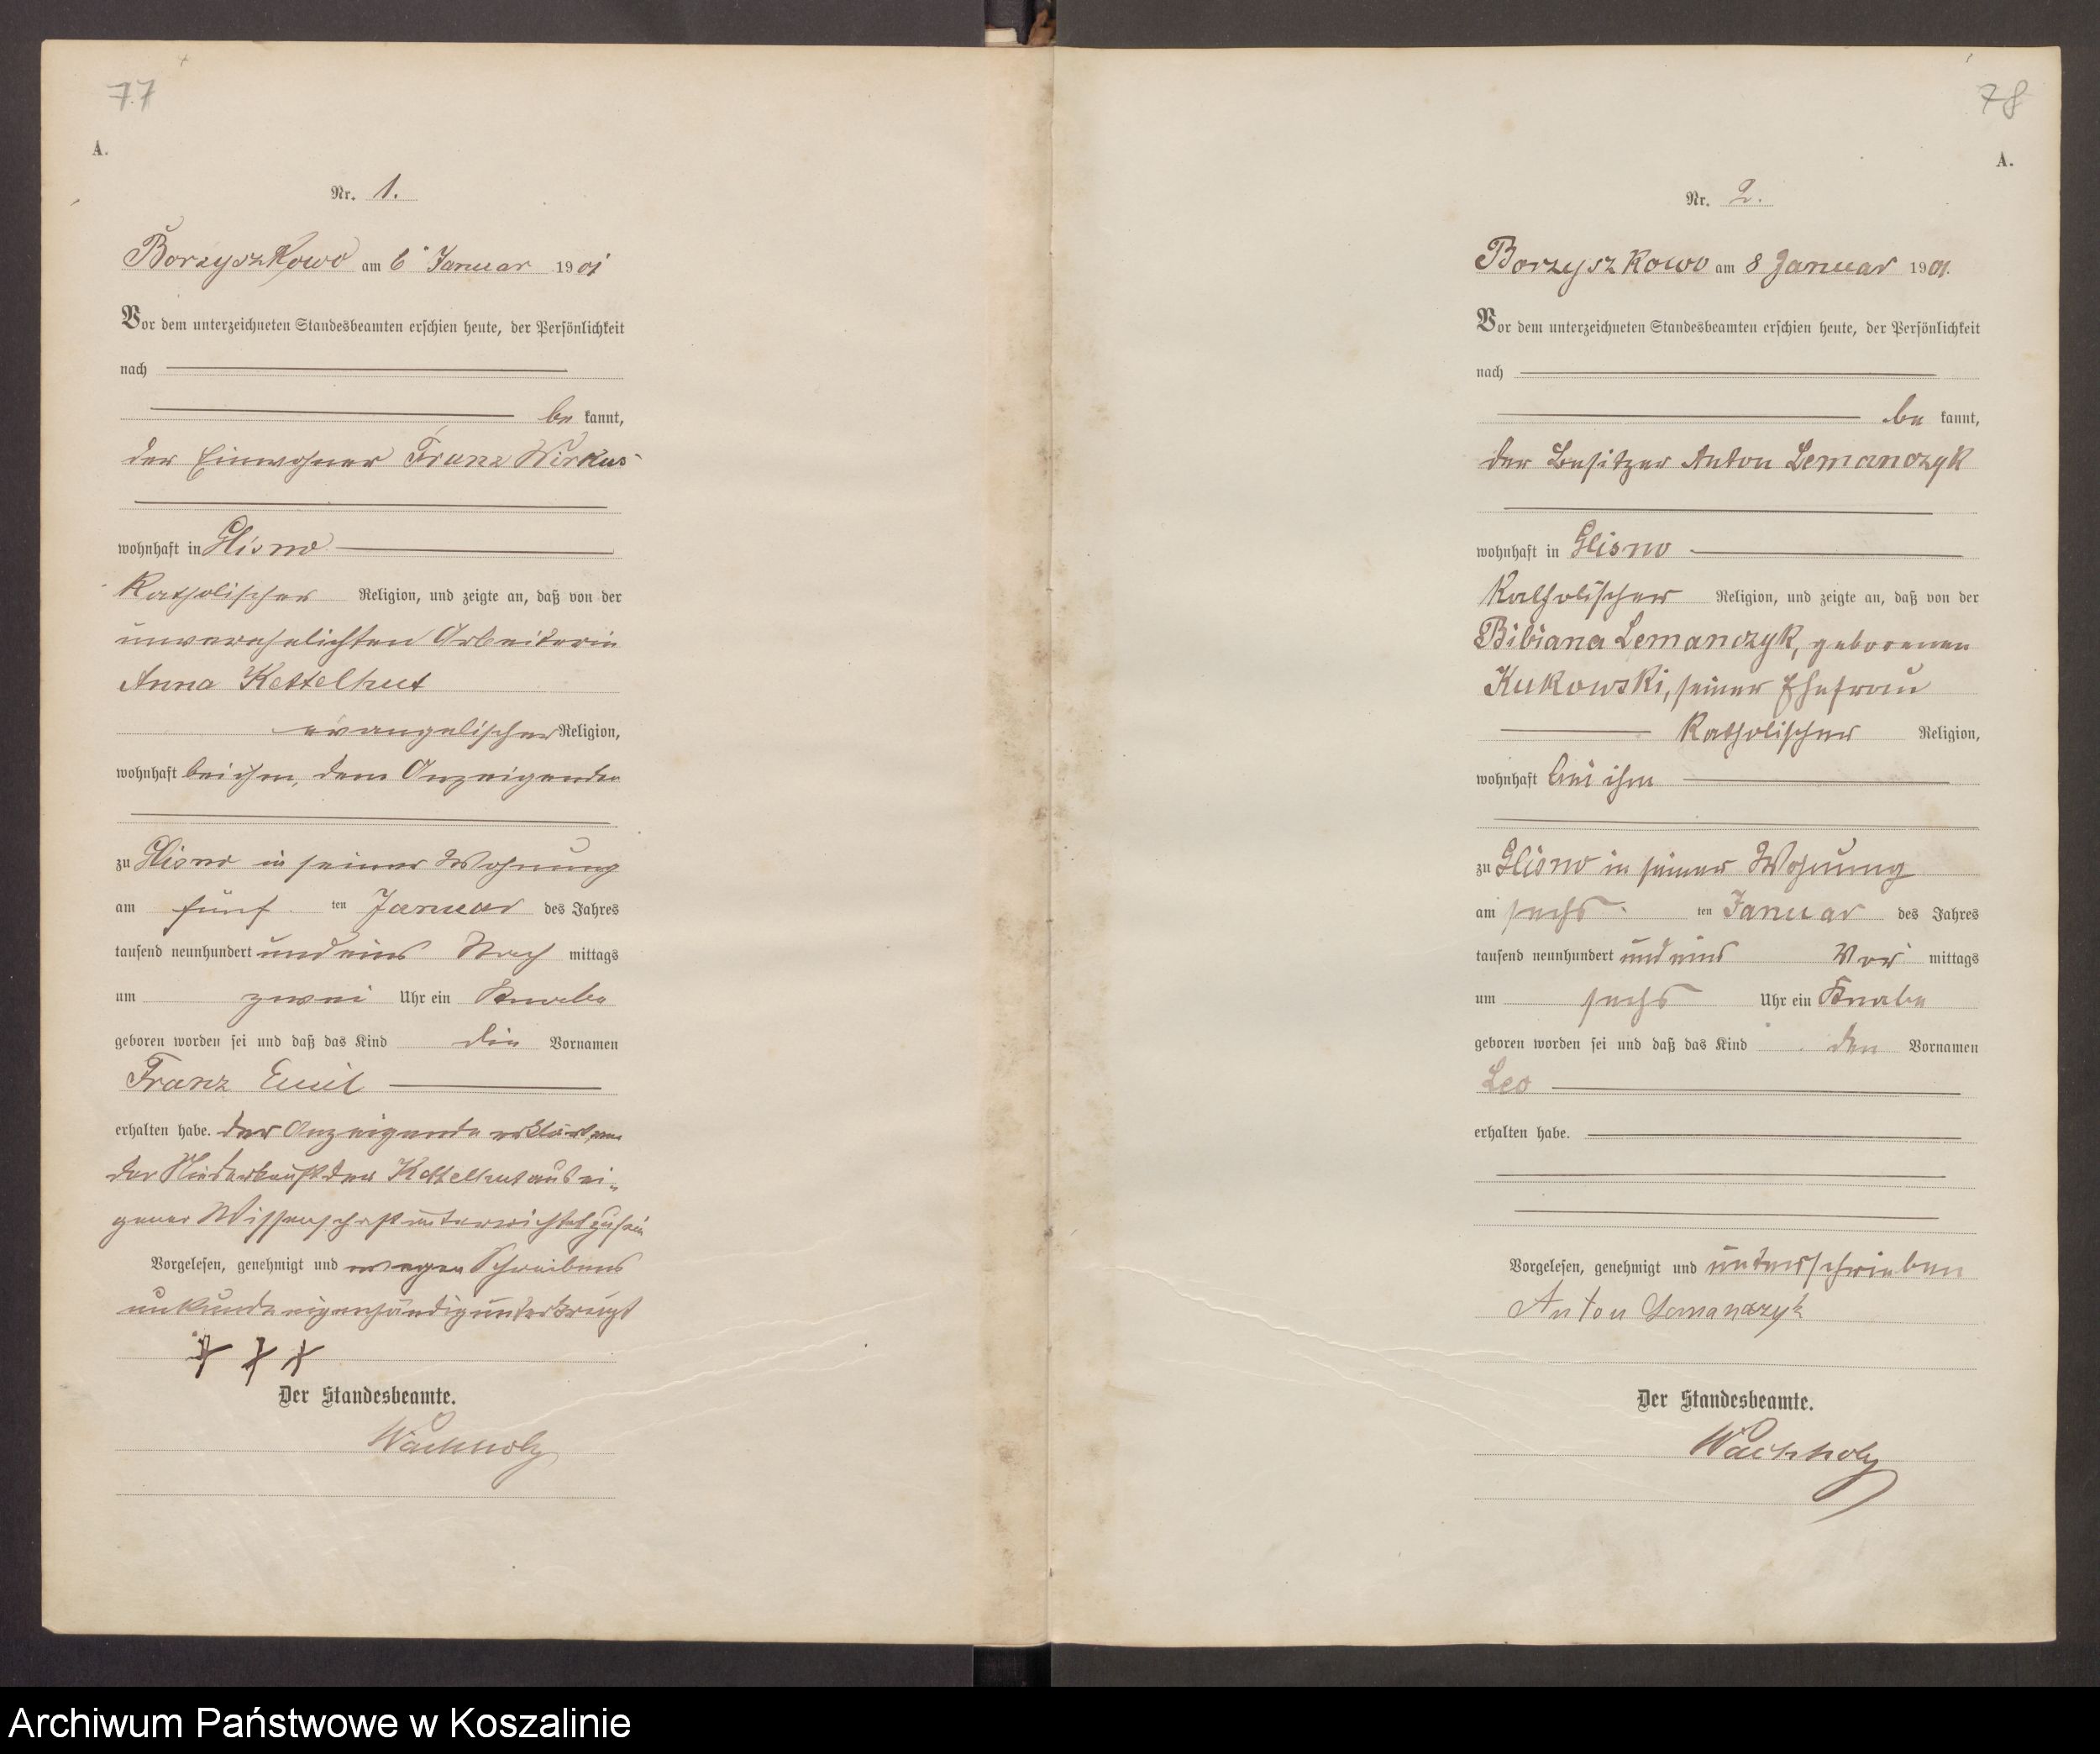 77
A.
Nr. 1.
Borzyszkowo am 6 Januar 1901
Vor dem unterzeichneten Standesbeamten erschien heute, der Persönlichkeit
nach
be kannt,
der Einwohner Franz Wirkus
wohnhaft in Glisno
katholischer Religion, und zeigte an, daß von der
unverehelichten Arbeiterin
Anna Kettelhut
evangelischer Religion,
wohnhaft bei ihm, dem Anzeigenden
zu Glisno in seiner Wohnung
am fünf ten Januar des Jahres
tausend neunhundert und eins Nach mittags
um zwei Uhr ein Knabe
geboren worden sei und daß das Kind die Vornamen
Franz Emil
erhalten habe. der Anzeigende erklärt, von
der Niederkunft der Kettelhut aus ei-
gener Wissenschaft unterrichtet zu sein
Vorgelesen, genehmigt und wegen Schreibens
unkunde eigenhändig unterkreuzt
+ + +
Der Standesbeamte.
Wachholz
78
A.
Nr. 2.
Borzyszkowo am 8 Januar 1901.
Vor dem unterzeichneten Standesbeamten erschien heute, der Persönlichkeit
nach
be kannt,
der Besitzer Anton Lemanczyk
wohnhaft in Glisno
katholischer Religion, und zeigte an, daß von der
Bibiana Lemanczyk, geborenen
Kukowski, seiner Ehefrau
katholischer Religion,
wohnhaft bei ihm
zu Glisno in seiner Wohnung
am sechs ten Januar des Jahres
tausend neunhundert und eins Vor mittags
um sechs Uhr ein Knabe
geboren worden sei und daß das Kind den Vornamen
Leo
erhalten habe.
Vorgelesen, genehmigt und unterschrieben
Anton Lemanczyk
Der Standesbeamte.
Wachholz
Archiwum Państwowe w Koszalinie